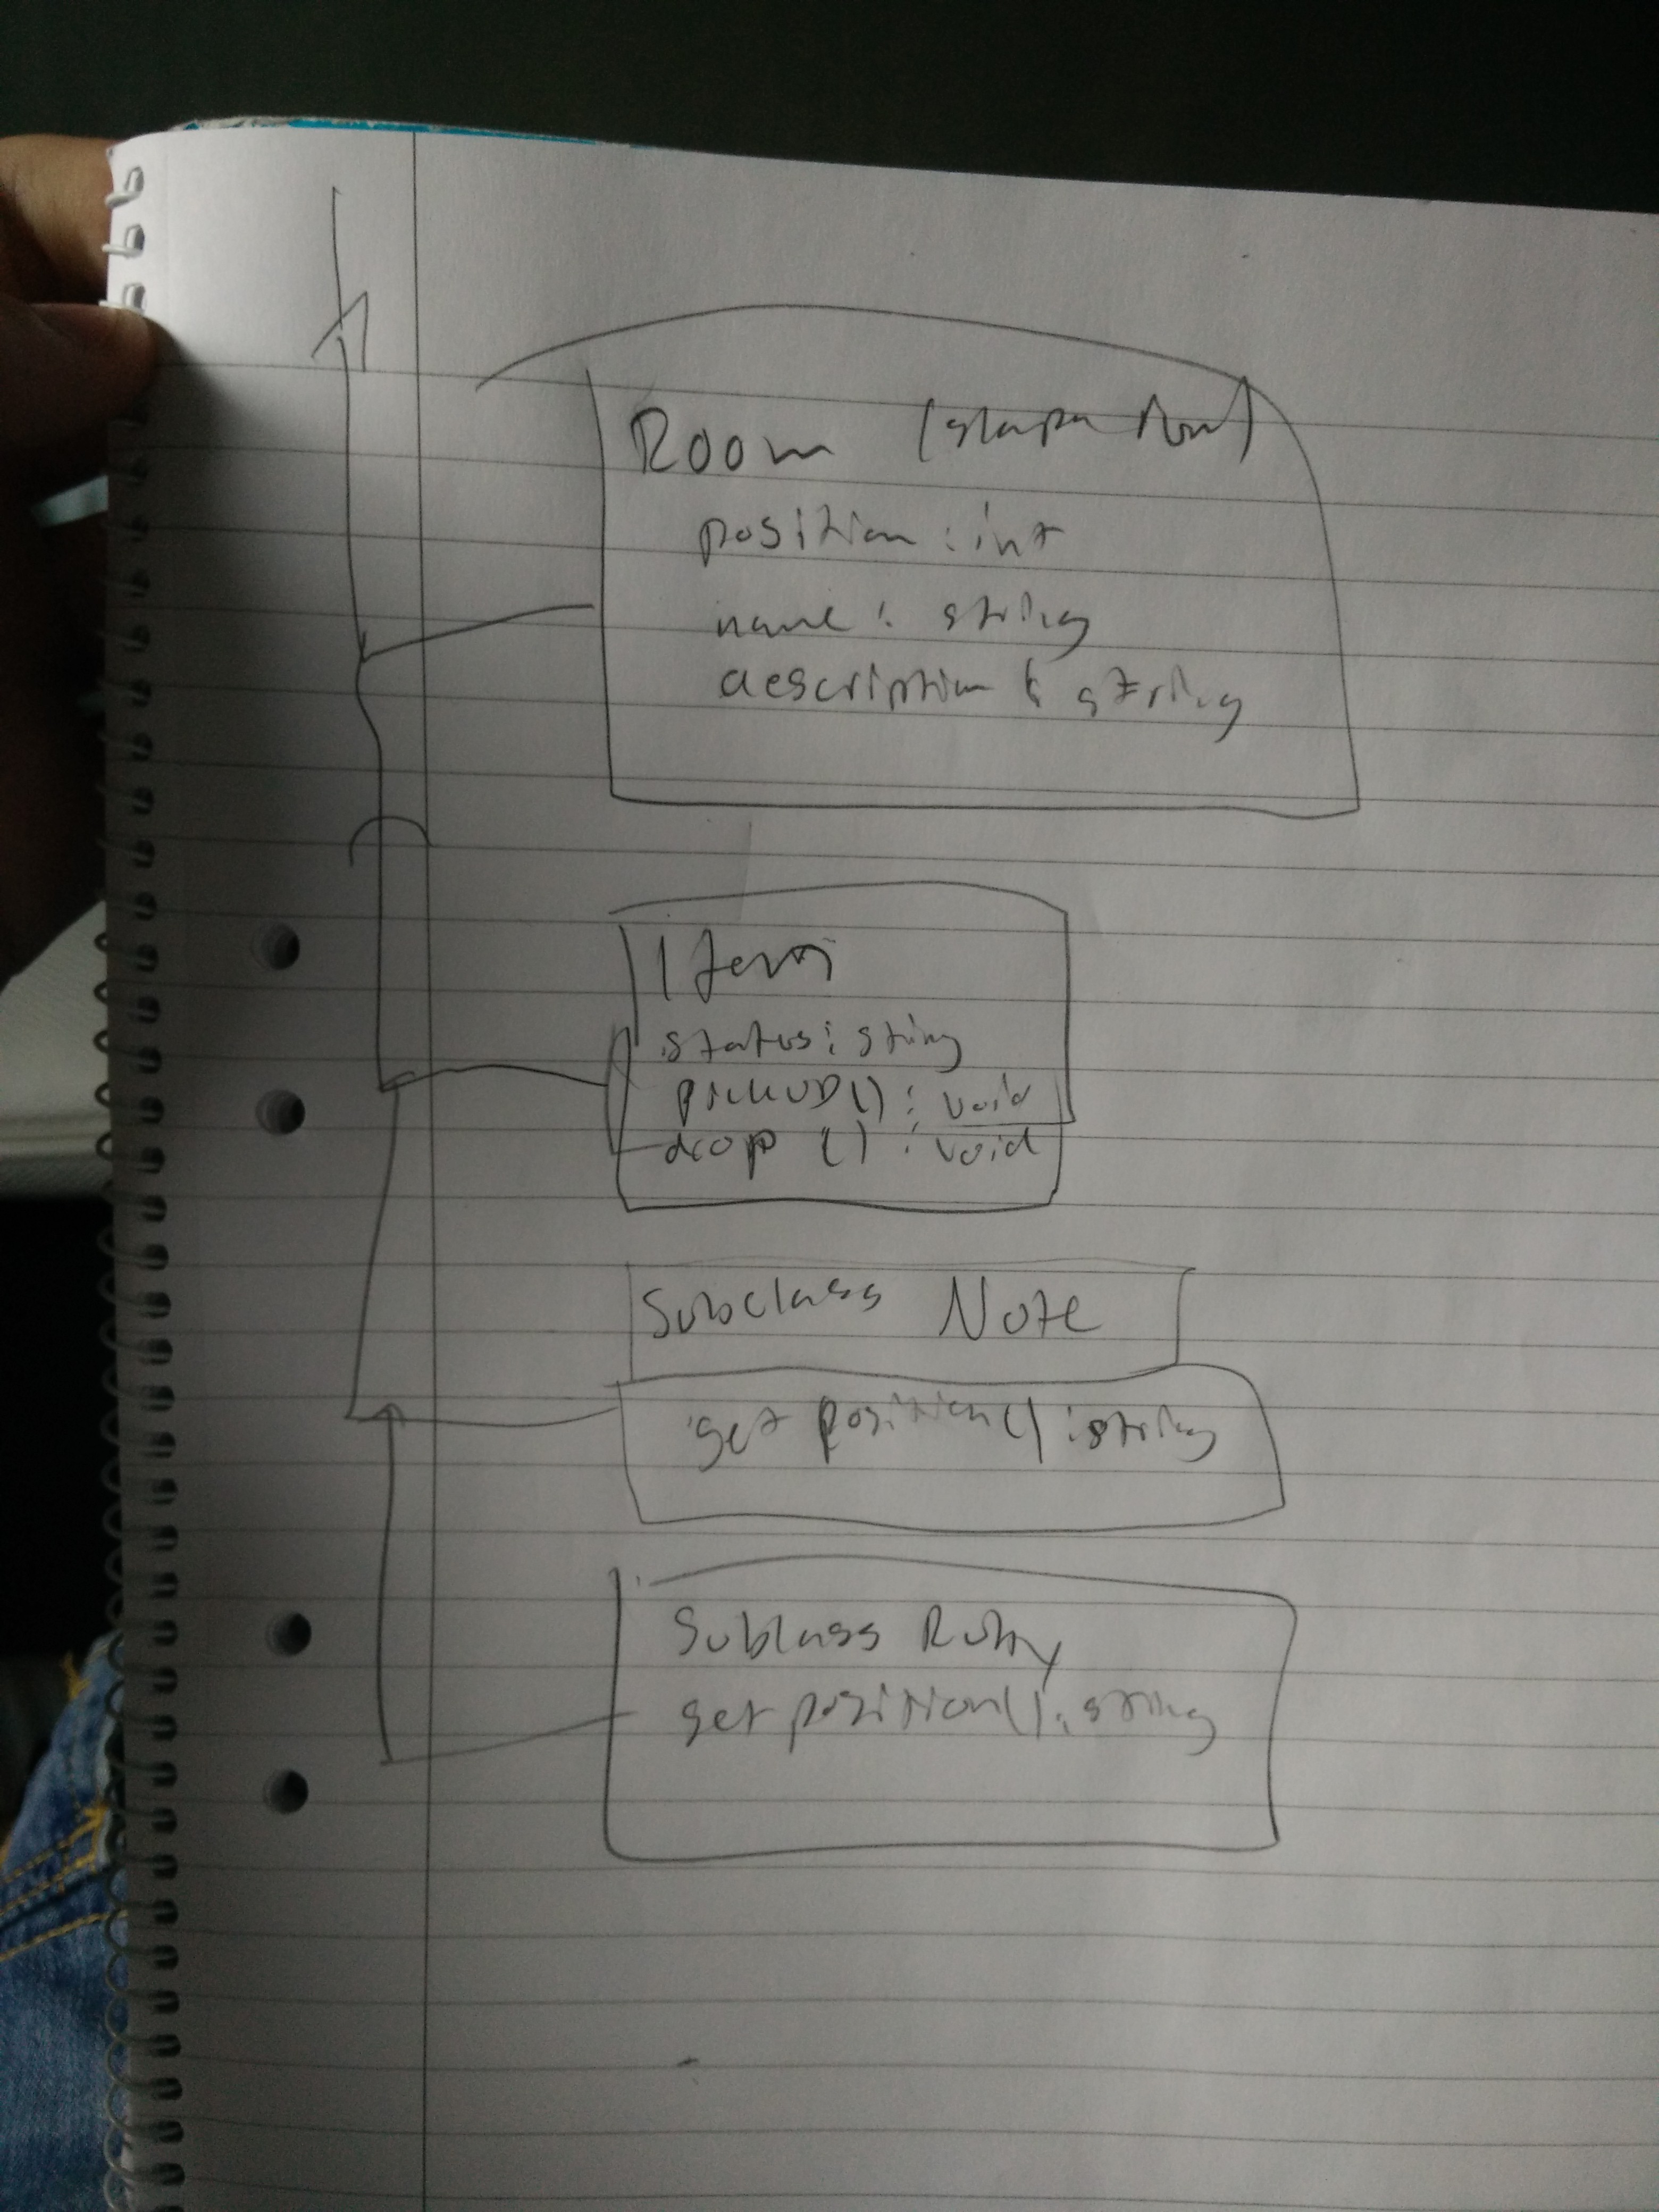 Room
position : int
name : string
description : string
Item
status : string
pickUp() : void
drop () : void
Subclass Note
get position() : string
Sublass Ruby
get position() : string